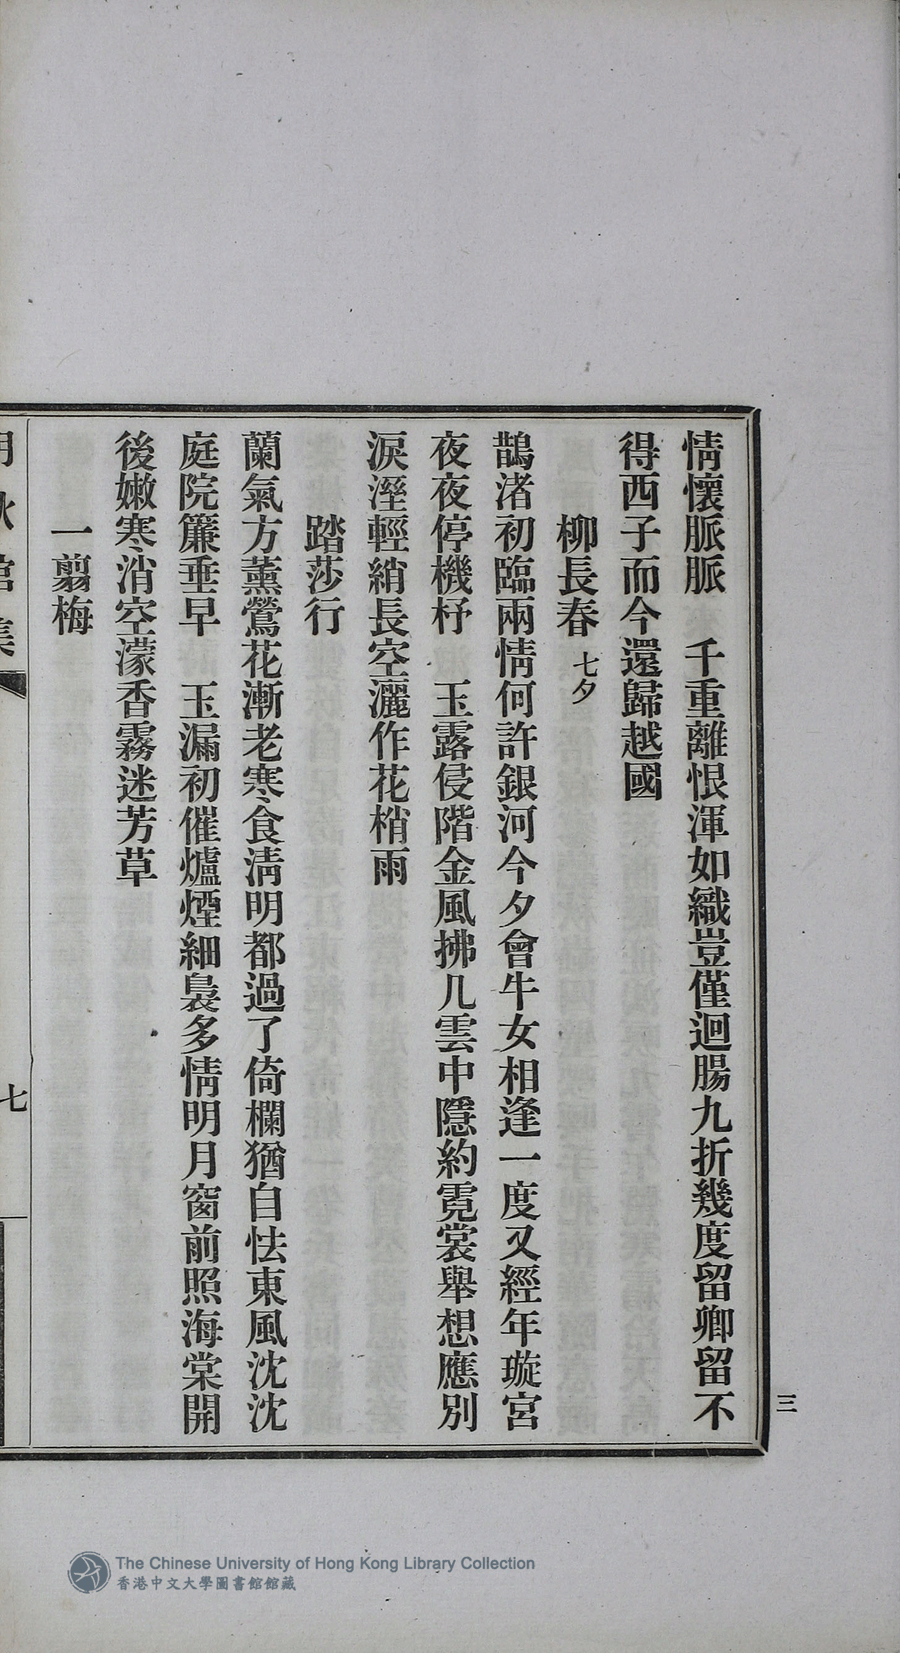 情懷脈脈　千重離恨渾如織豈僅迴腸九折幾度留卿留不
得西子而今還歸越國
柳長春 七夕
鵲渚初臨兩情何許銀河今夕會牛女相逢一度又經年璇宮
夜夜停機杼　玉露侵階金風拂几雲中隱約霓裳舉想應別
淚溼輕綃長空灑作花梢雨
踏莎行
蘭氣方薰鶯花漸老寒食淸明都過了倚欄猶自怯東風沈沈
庭院簾垂早　玉漏初催爐煙細裊多情明月窗前照海棠開
後嫩寒消空濛香霧迷芳草
一翦梅
七
三
The Chinese University of Hong Kong Library Collection
香港中文大學圖書館館藏